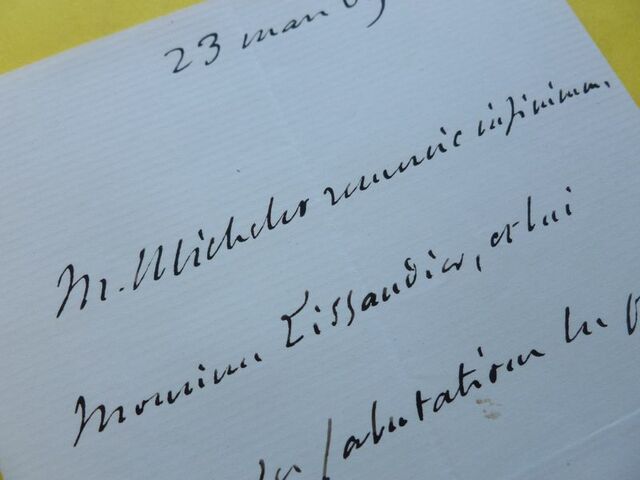 23 mars 69
M. Michelet remercie infiniment
Monsieur Tissandier, et lui
les salutations les